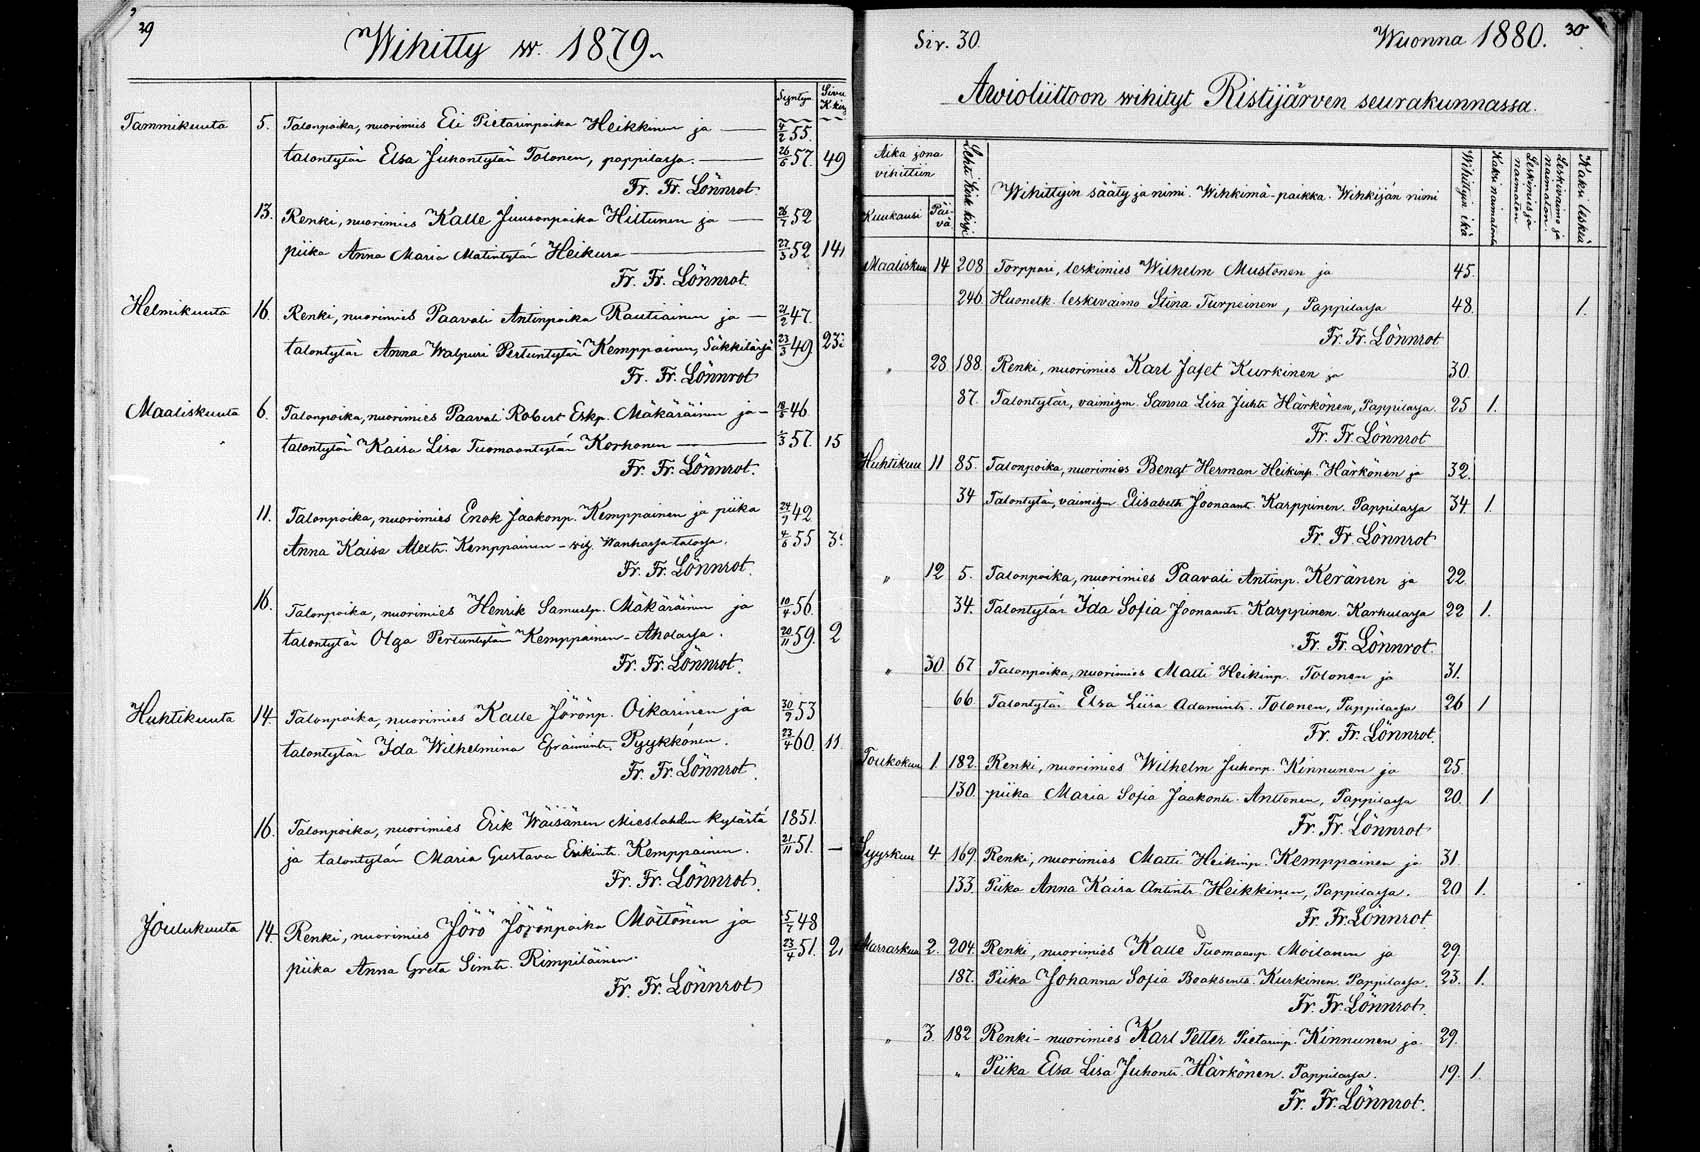 29
Wihitty w. 1879.
Syntyn. Sivu K.kirj
Tammikuuta 5. Talonpoika, nuorimies Eli Pietarinpoika Heikkinen ja 4/2 55.
talontytär Elsa Juhontytär Tolonen, pappilassa. 26/6 57. 49
Fr. Fr. Lönnrot
13. Renki, nuorimies Kalle Juusonpoika Hiltunen ja 26/7 52
piika Anna Maria Matintytär Heikura 22/3 52 141
Fr. Fr. Lönnrot.
Helmikuuta 16. Renki, nuorimies Paavali Antinpoika Rautiainen ja 21/2 47.
talontytär Anna Walpuri Pertuntytär Kemppainen, Säkkilässä 23/3 49. 23
Fr. Fr. Lönnrot
Maaliskuuta 6. Talonpoika, nuorimies Paavali Robert Eskp. Mäkäräinen ja 46.
talontytär Kaisa Lisa Tuomaantytär Korhonen 57. 15
Fr. Fr. Lönnrot.
11. Talonpoika, nuorimies Enok Jaakonp. Kemppainen ja piika 24/9 42
Anna Kaisa Alextr. Kemppainen - wih. Wanhassa talossa. 4/6 55 3
Fr. Fr. Lönnrot.
16. Talonpoika, nuorimies Henrik Samuelp. Mäkäräinen ja 10/4 56.
talontytär Olga Pertuntytär Kemppainen - Aholassa. 20/11 59. 2
Fr. Fr. Lönnrot.
Huhtikuuta 14. Talonpoika, nuorimies Kalle Jörönp. Oikarinen ja 30/9 53
talontytär Ida Wilhelmina Efraimintr. Pyykkönen. 23/4 60. 11.
Fr. Fr. Lönnrot.
16. Talonpoika, nuorimies Erik Wäisänen Mieslahden kylästä 1851.
ja talontytär Maria Gustava Erikintr. Kemppainen. 21/11 51. —
Fr. Fr. Lönnrot.
Joulukuuta 14. Renki, nuorimies Jörö Jörönpoika Möttönen ja 5/7 48
piika Anna Greta Simtr. Rimpiläinen. 23/4 51. 2
Fr. Fr. Lönnrot
Siv. 30. Wuonna 1880. 30
Awioliittoon wihityt Ristijärven seurakunnassa.
Aika jona vihittiin
Kuukausi Päivä Lehti Kirk. kirj. Wihittyin sääty ja nimi. Wihkimä-paikka. Wihkijän nimi Wihittyin ikä Kaksi naimatonta Leskimies ja naimaton Leskivaimo ja naimaton. Kaksi leskiä
Maaliskuu 14 208 Torppari, leskimies Wilhelm Mustonen ja 45.
246. Huonelk. leskivaimo Stina Turpeinen, Pappilassa 48. 1.
Fr. Fr. Lönnrot
„ 28. 188. Renki, nuorimies Karl Jafet Kurkinen ja 30.
87. Talontytär, vaimizm. Sanna Lisa Juhtr. Härkönen, Pappilassa. 25 1.
Fr. Fr. Lönnrot
Huhtikuu 11 85. Talonpoika, nuorimies Bengt Herman Heikinp. Härkönen ja 32.
34 Talontytär, vaimizm Elisabeth Joonaantr. Karppinen. Pappilassa 34. 1.
Fr. Fr. Lönnrot
„ 12 5. Talonpoika, nuorimies Paavali Antinp. Keränen ja 22.
34. Talontytär Ida Sofia Joonaantr. Karppinen. Karhulassa 22 1.
Fr. Fr. Lönnrot.
„ 30. 67 Talonpoika, nuorimies Matti Heikinp. Tolonen ja 31.
66. Talontytär Elsa Liisa Adamintr. Tolonen, Pappilassa 26 1
Fr. Fr. Lönnrot.
Toukokuu 1. 182. Renki, nuorimies Wilhelm Juhonp. Kinnunen ja 25.
130. piika Maria Sofia Jaakontr. Anttonen, Pappilassa 20. 1.
Fr. Fr. Lönnrot
Syyskuu 4. 169. Renki, nuorimies Matti Heikinp. Kemppainen ja 31.
133. Piika Anna Kaisa Antintr. Heikkinen, Pappilassa. 20 1.
Fr. Fr. Lönnrot
Marraskuu 2. 204. Renki, nuorimies Kalle Tuomaanp. Moilanen ja 29.
187. Piika Johanna Sofia Boaksentr. Kurkinen. Pappilassa. 23. 1.
Fr. Fr. Lönnrot.
„ 3. 182 Renki - nuorimies Karl Petter Pietarinp. Kinnunen ja 29.
„ Piika Elsa Lisa Juhontr. Härkönen. Pappilassa. 19. 1.
Fr. Fr. Lönnrot.